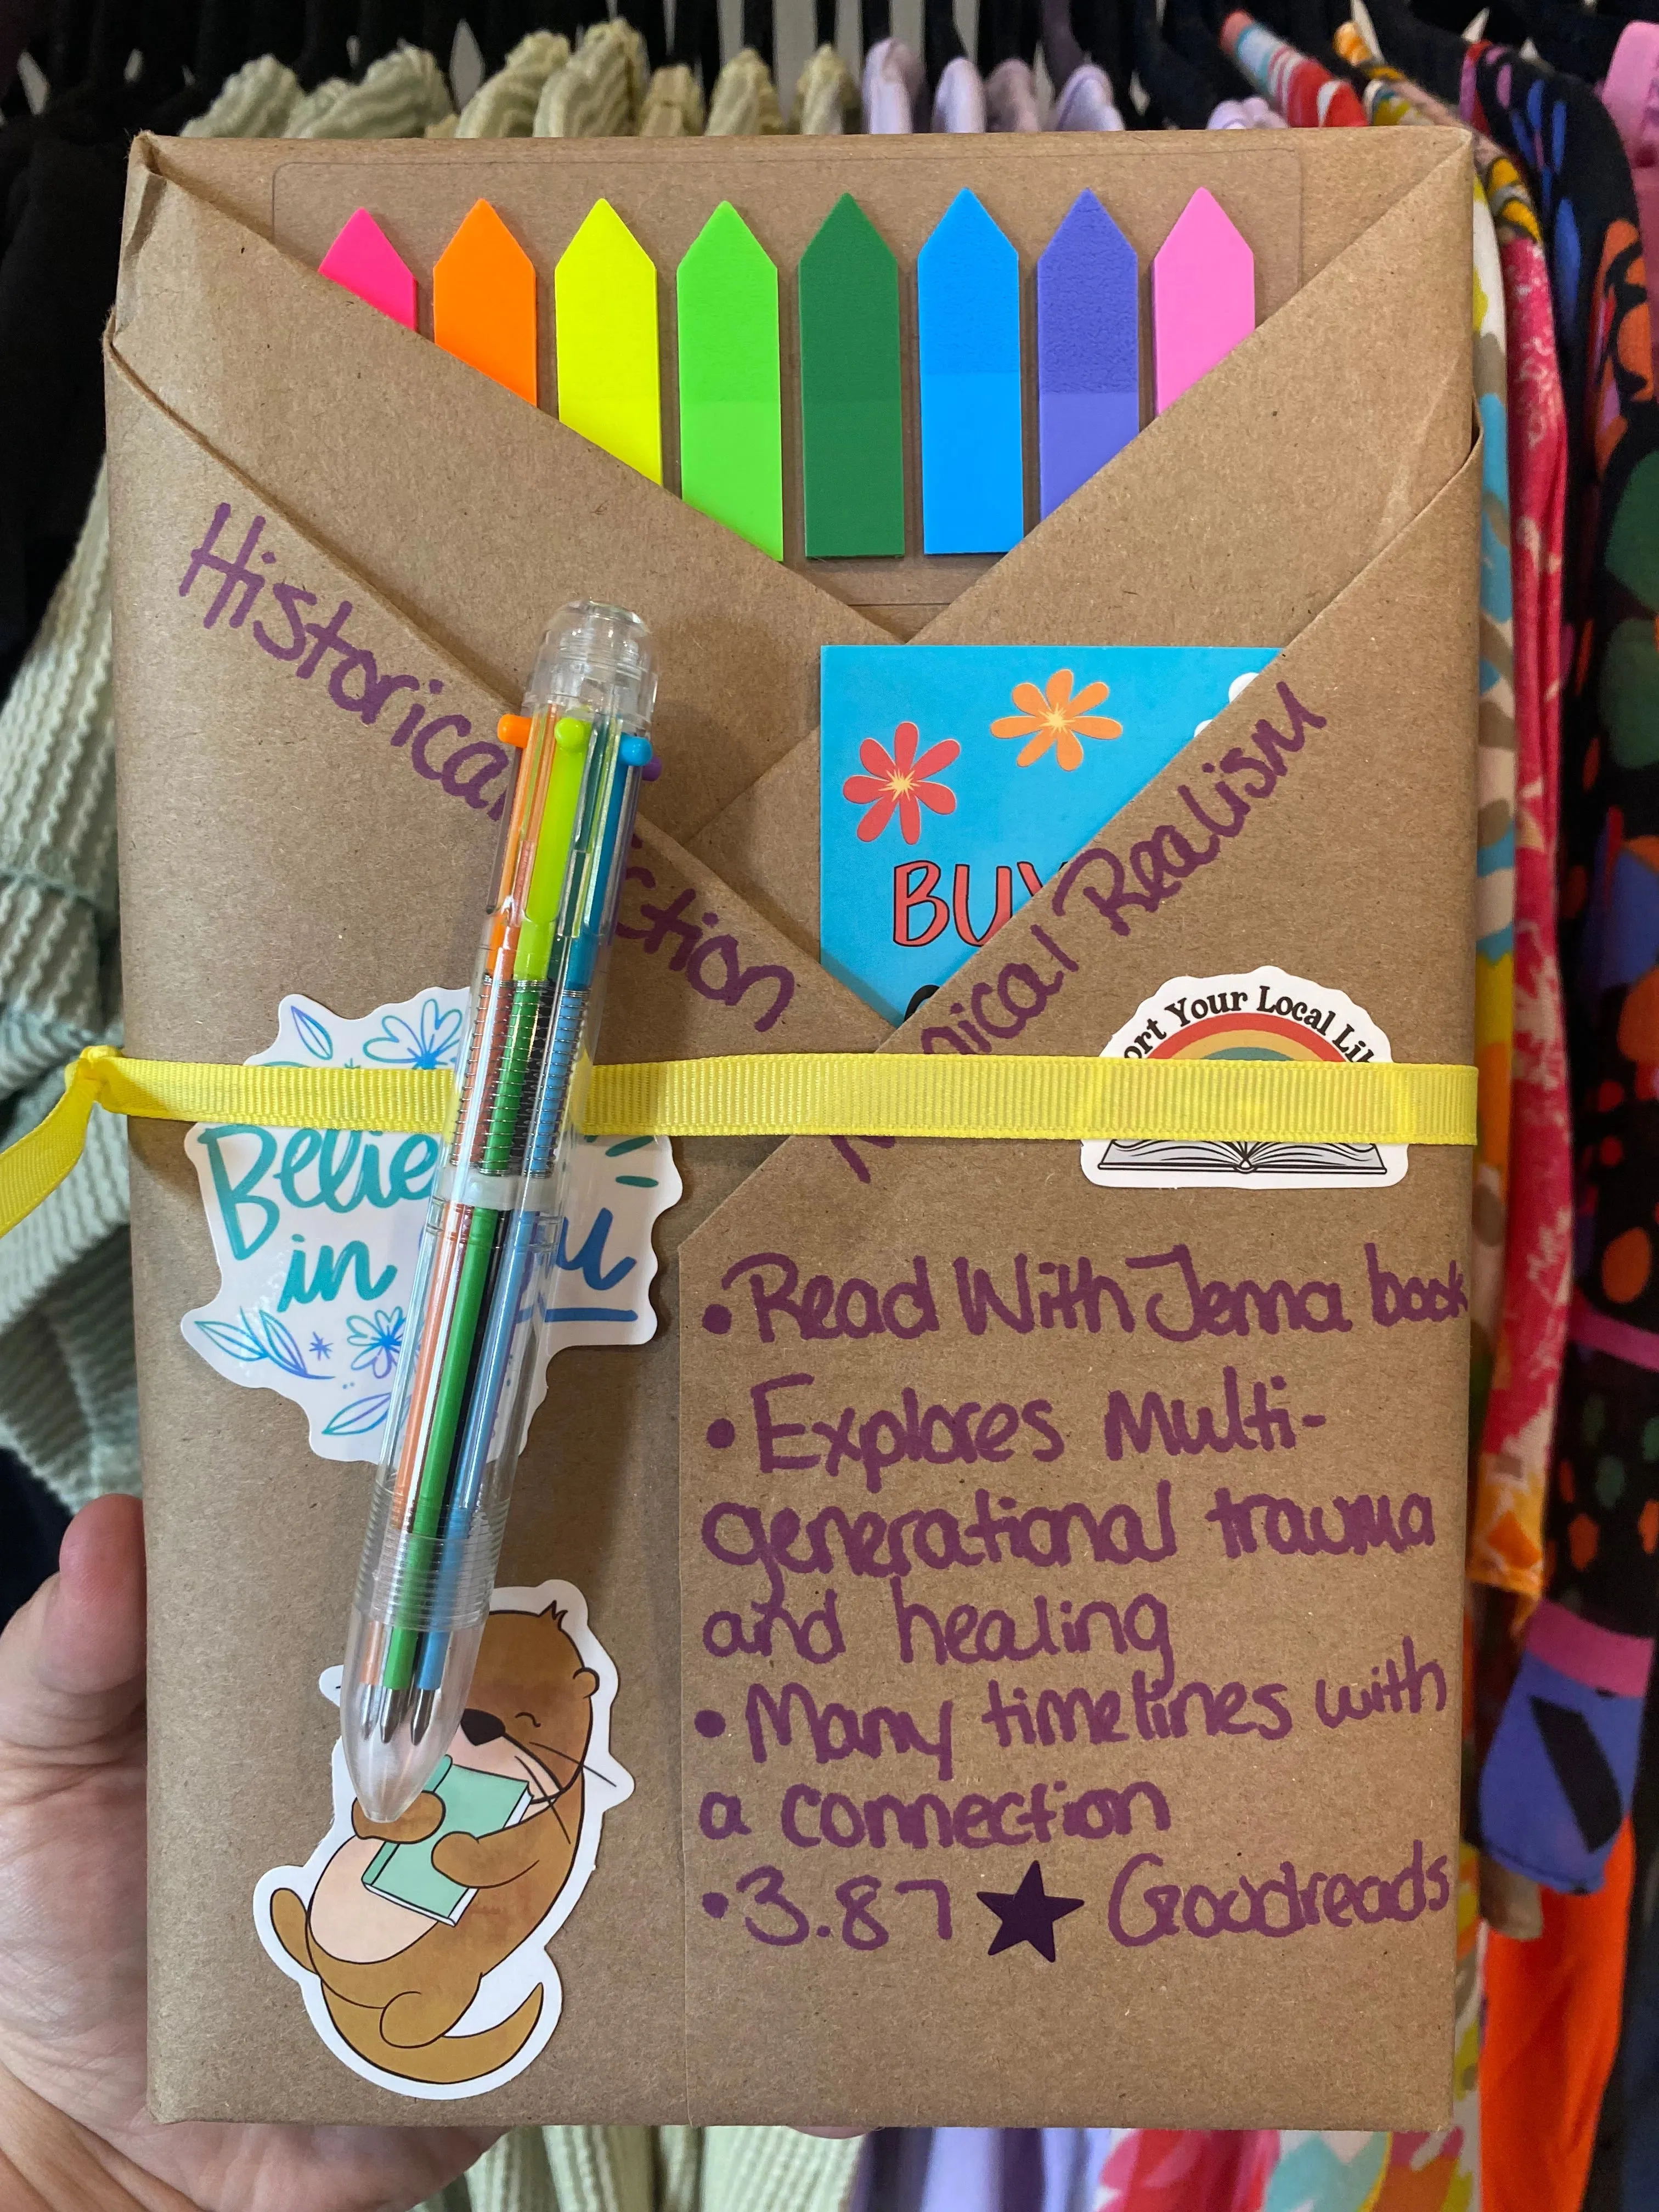 Historical
BUY
Realism
Your Local
Believe
in
• Read With Jenna book
• Explores Multi-
generational trauma
and healing
• Many timelines with
a connection
• 3.87 ★ Goodreads